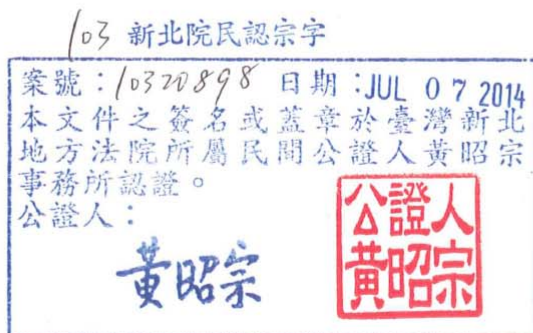 103 新北院民認宗字
案號：10320898 日期：JUL 07 2014
本文件之簽名或蓋章於臺灣新北
地方法院所屬民間公證人黃昭宗
事務所認證。
公證人：
黃昭宗
公證人
黃昭宗